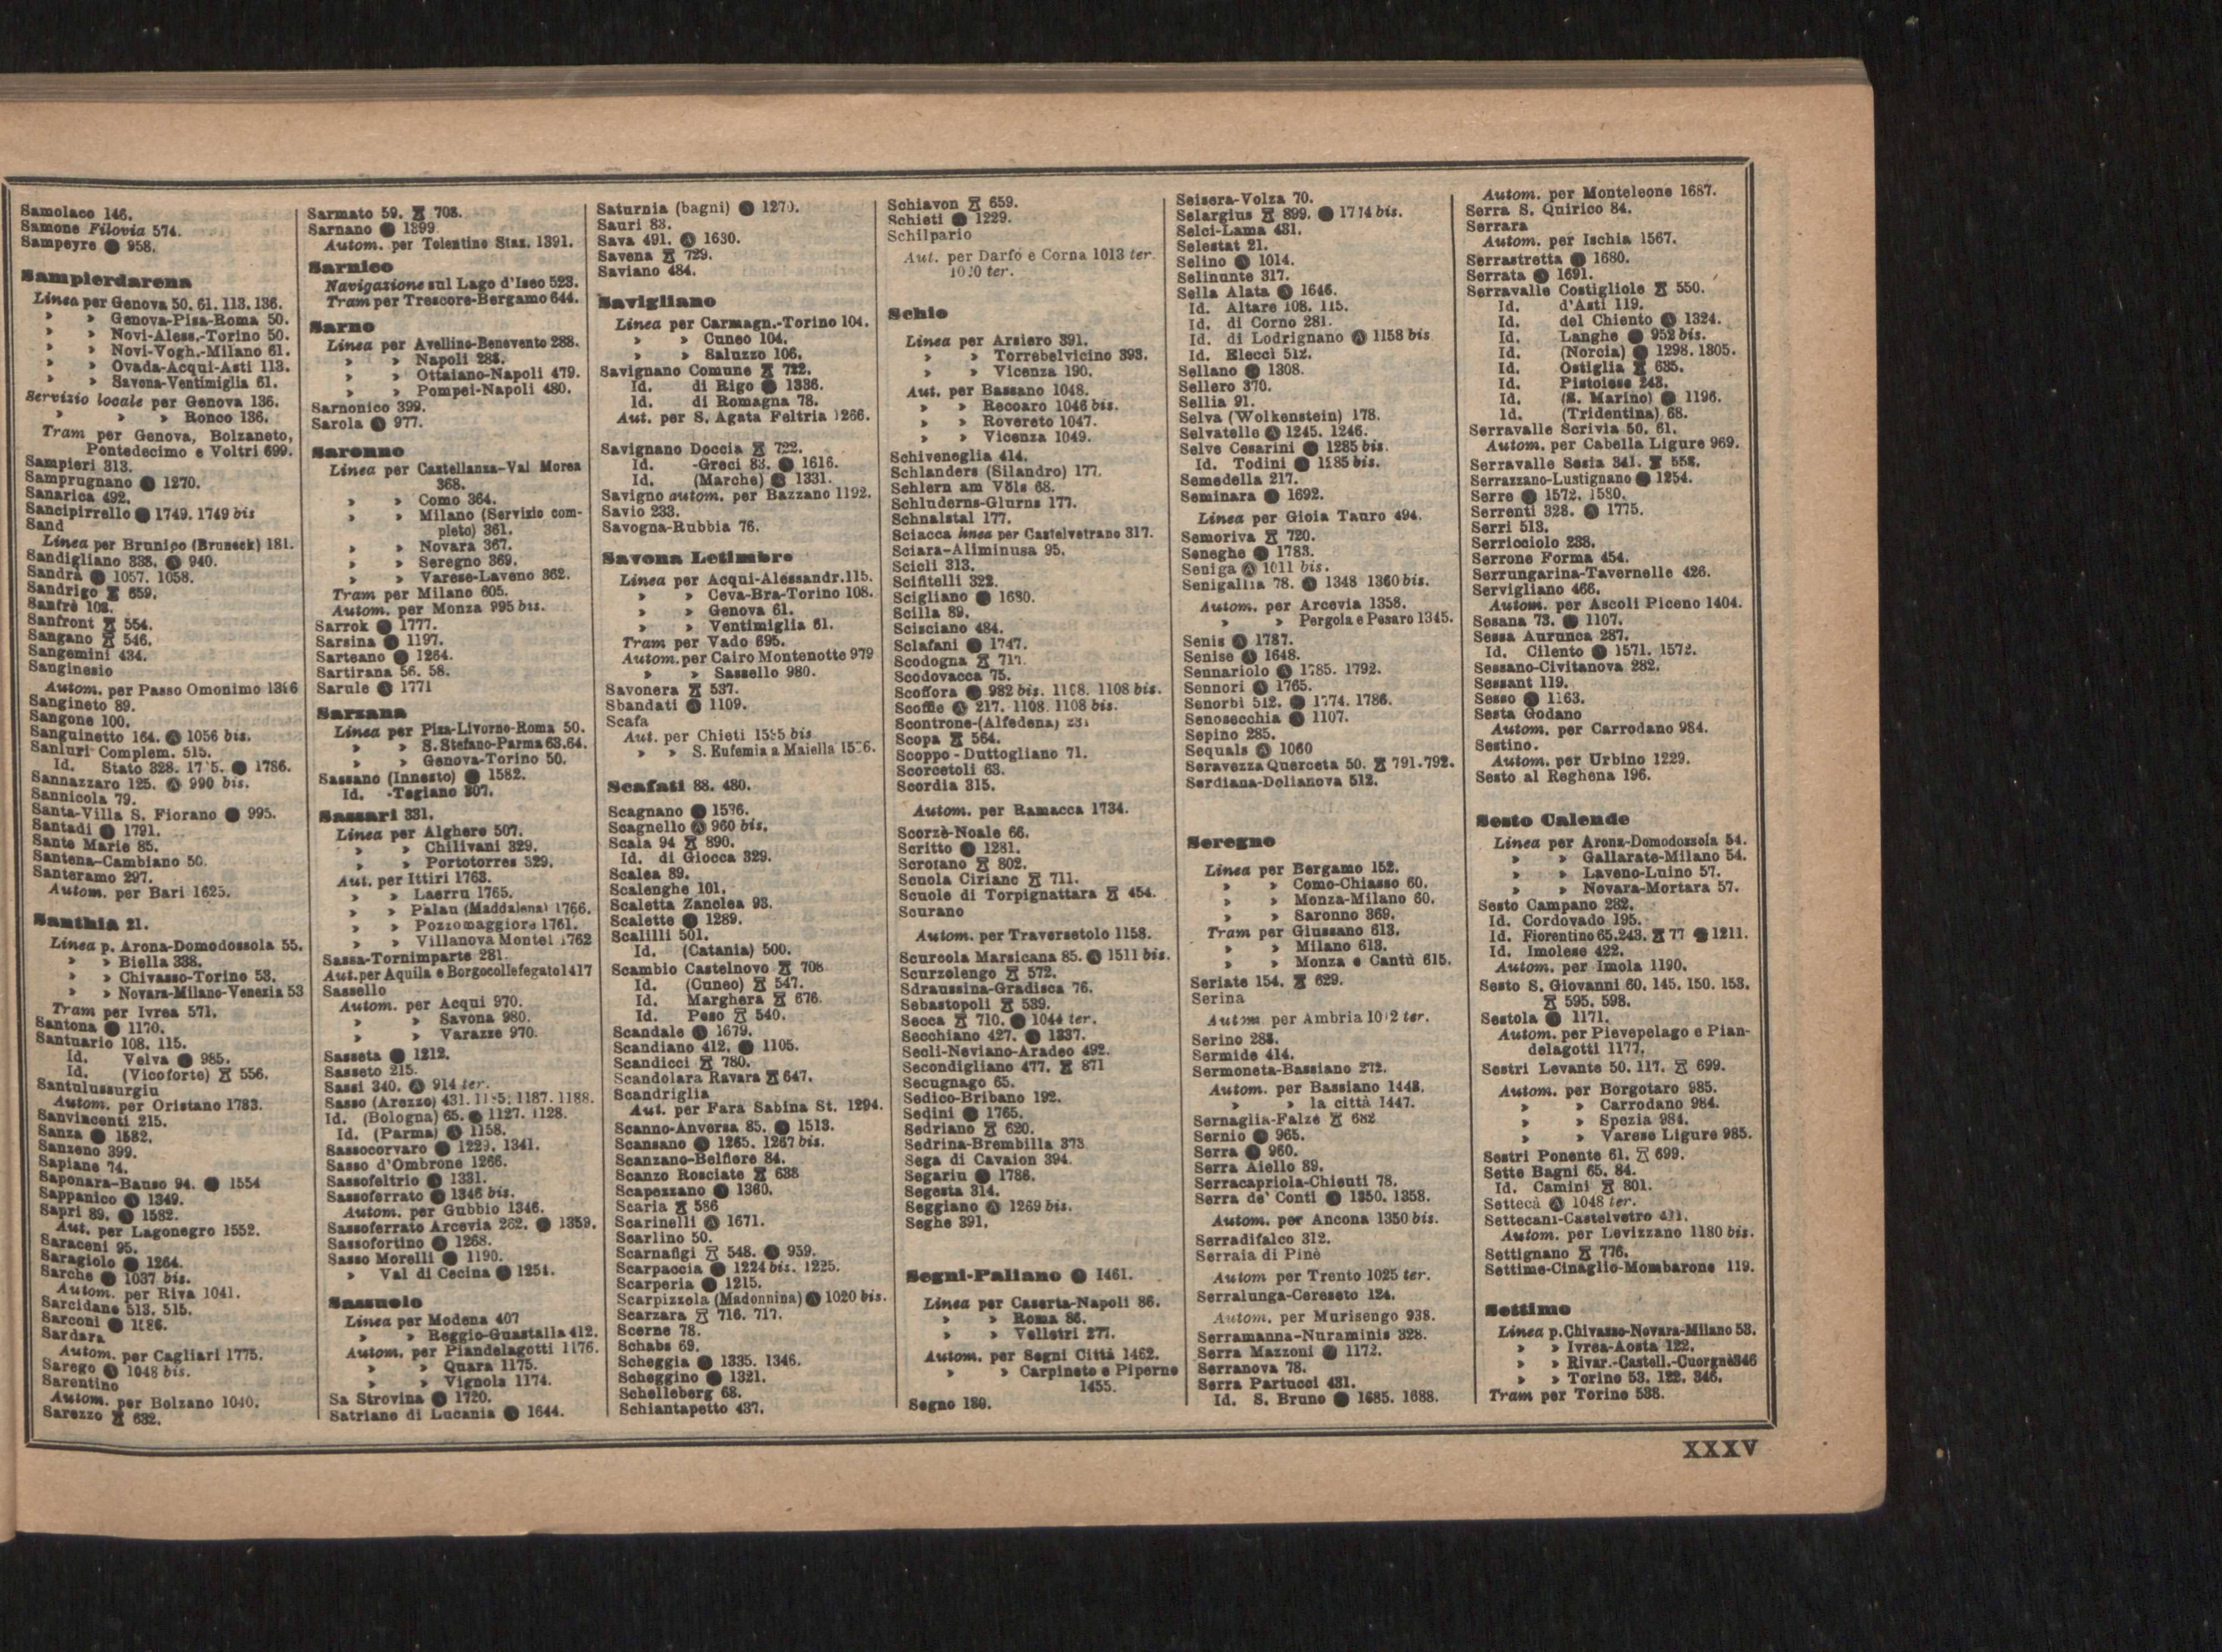 Samolaco 146.
Samone Filovia 574.
Sampeyre ● 958.
Sampierdarena
Linea per Genova 50. 61. 113. 136.
» » Genova-Pisa-Roma 50.
» » Novi-Aless.-Torino 50.
» » Novi-Vogh.-Milano 61.
» » Ovada-Acqui-Asti 113.
» » Savona-Ventimiglia 61.
Servizio locale per Genova 136.
» » » Ronco 136.
Tram per Genova, Bolzaneto,
Pontedecimo e Voltri 699.
Sampieri 313.
Samprugnano ● 1270.
Sanarica 492.
Sancipirrello ● 1749. 1749 bis
Sand
Linea per Brunico (Bruneck) 181.
Sandigliano 338. Ⓐ 940.
Sandrà ● 1057. 1058.
Sandrigo ⧖ 659.
Sanfrè 102.
Sanfront ⧖ 554.
Sangano ⧖ 546.
Sangemini 434.
Sanginesio
Autom. per Passo Omonimo
Sangineto 89.
Sangone 100.
Sanguinetto 164. Ⓐ 1056 bis.
Sanluri Complem. 515.
Id. Stato 328. ● 1786.
Sannazzaro 125. Ⓐ 990 bis.
Sannicola 79.
Santa-Villa S. Fiorano ● 995.
Santadi ● 1791.
Sante Marie 85.
Santena-Cambiano 50.
Santeramo 297.
Autom. per Bari 1625.
Santhià 21.
Linea p. Arona-Domodossola 55.
» » Biella 338.
» » Chivasso-Torino 53.
» » Novara-Milano-Venezia 53
Tram per Ivrea 571.
Santona ● 1170.
Santuario 108. 115.
Id. Velva ● 985.
Id. (Vicoforte) ⧖ 556.
Santulussurgiu
Autom. per Oristano 1783.
Sanvincenti 215.
Sanza ● 1582.
Sanzeno 399.
Sapiane 74.
Saponara-Bauso 94. ● 1554
Sappanico Ⓐ 1349.
Sapri 89. ● 1582.
Aut. per Lagonegro 1552.
Saraceni 95.
Saragiolo ● 1264.
Sarche ● 1037 bis.
Autom. per Riva 1041.
Sarcidano 513. 515.
Sarconi ● 1586.
Sardara
Autom. per Cagliari 1775.
Sarego Ⓐ 1048 bis.
Sarentino
Autom. per Bolzano 1040.
Sarezzo ⧖ 632.
Sarmato 59. ⧖ 708.
Sarnano ● 1399
Autom. per Tolentino Staz. 1391.
Sarnico
Navigazione sul Lago d'Iseo 523.
Tram per Trescore-Bergamo 644.
Sarno
Linea per Avellino-Benevento 288.
» » Napoli 288.
» » Ottaiano-Napoli 479.
» » Pompei-Napoli 480.
Sarnonico 399.
Sarola Ⓐ 977.
Saronno
Linea per Castellanza-Val Morea
368.
» » Como 364.
» » Milano (Servizio com-
pleto) 361.
» » Novara 367.
» » Seregno 369.
» » Varese-Laveno 362.
Tram per Milano 605.
Autom. per Monza 995 bis.
Sarrok ● 1777.
Sarsina ● 1197.
Sarteano ● 1264.
Sartirana 56. 58.
Sarule Ⓐ 1771
Sarzana
Linea per Pisa-Livorno-Roma 50.
» » S. Stefano-Parma 63.64.
» » Genova-Torino 50.
Sassano (Innesto) ● 1582.
Id. -Tegiano 307.
Sassari 331.
Linea per Alghero 507.
» » Chilivani 329.
» » Portotorres 329.
Aut. per Ittiri 1763.
» » Laerru 1765.
» » Palau (Maddalena) 1766.
» » Pozzomaggiore 1761.
» » Villanova Montel 1762
Sassa-Tornimparte 281.
Aut.per Aquila e Borgocollefegato 1417
Sassello
Autom. per Acqui 970.
» » Savona 980.
» » Varazze 970.
Sasseta ● 1212.
Sasseto 215.
Sassi 340. Ⓐ 914 ter.
Sasso (Arezzo) 431. 1187. 1188.
Id. (Bologna) 65. ● 1127. 1128.
Id. (Parma) Ⓐ 1158.
Sassocorvaro ● 1229. 1341.
Sasso d'Ombrone 1266.
Sassofeltrio ● 1331.
Sassoferrato ● 1346 bis.
Autom. per Gubbio 1346.
Sassoferrato Arcevia 262. ● 1359.
Sassofortino ● 1268.
Sasso Morelli ● 1190.
» Val di Cecina ● 1254.
Sassuolo
Linea per Modena 407
» » Reggio-Guastalla 412.
Autom. per Piandelagotti 1176.
» » Quara 1175.
» » Vignola 1174.
Sa Strovina ● 1720.
Satriano di Lucania ● 1644.
Saturnia (bagni) ● 1270.
Sauri 83.
Sava 491. Ⓐ 1630.
Savena ⧖ 729.
Saviano 484.
Savigliano
Linea per Carmagn.-Torino 104.
» » Cuneo 104.
» » Saluzzo 106.
Savignano Comune ⧖ 722.
Id. di Rigo ● 1336.
Id. di Romagna 78.
Aut. per S. Agata Feltria 1266.
Savignano Doccia ⧖ 722.
Id. -Greci 83. ● 1616.
Id. (Marche) ● 1331.
Savigno autom. per Bazzano 1192.
Savio 233.
Savogna-Rubbia 76.
Savona Letimbro
Linea per Acqui-Alessandr. 115.
» » Ceva-Bra-Torino 108.
» » Genova 61.
» » Ventimiglia 61.
Tram per Vado 695.
Autom. per Cairo Montenotte 979
» » Sassello 980.
Savonera ⧖ 537.
Sbandati Ⓐ 1109.
Scafa
Aut. per Chieti bis
» » S. Eufemia a Maiella
Scafati 88. 480.
Scagnano ● 1536.
Scagnello Ⓐ 960 bis.
Scala 94 ⧖ 890.
Id. di Giocca 329.
Scalea 89.
Scalenghe 101.
Scaletta Zanclea 93.
Scalette ● 1289.
Scalilli 501.
Id. (Catania) 500.
Scambio Castelnovo ⧖ 708
Id. (Cuneo) ⧖ 547.
Id. Marghera ⧖ 676.
Id. Peso ⧖ 540.
Scandale Ⓐ 1679.
Scandiano 412. ● 1105.
Scandicci ⧖ 780.
Scandolara Ravara ⧖ 647.
Scandriglia
Aut. per Fara Sabina St. 1294.
Scanno-Anversa 85. ● 1513.
Scansano ● 1265. 1267 bis.
Scanzano-Belfiore 84.
Scanzo Rosciate ⧖ 638
Scapezzano ● 1360.
Scaria ⧖ 586
Scarinelli Ⓐ 1671.
Scarlino 50.
Scarnafigi ⧖ 548. ● 959.
Scarpaccia ● 1224 bis. 1225.
Scarperia ● 1215.
Scarpizzola (Madonnina) Ⓐ 1020 bis.
Scarzara ⧖ 716. 717.
Scerne 78.
Schabs 69.
Scheggia ● 1335. 1346.
Scheggino ● 1321.
Schelleberg 68.
Schiantapetto 437.
Schiavon ⧖ 659.
Schieti ● 1229.
Schilpario
Aut. per Darfo e Corna 1013 ter
1020 ter.
Schio
Linea per Arsiero 391.
» » Torrebelvicino 393.
» » Vicenza 190.
Aut. per Bassano 1048.
» » Recoaro 1046 bis.
» » Rovereto 1047.
» » Vicenza 1049.
Schiveneglia 414.
Schlanders (Silandro) 177.
Schlern am Völs 68.
Schluderns-Glurns 177.
Schnalstal 177.
Sciacca linea per Castelvetrano 317.
Sciara-Aliminusa 95.
Scicli 313.
Scifitelli 322.
Scigliano ● 1680.
Scilla 89.
Scisciano 484.
Sclafani ● 1747.
Scodogna ⧖ 711.
Scodovacca 75.
Scoffora ● 982 bis. 1108. 1108 bis.
Scoffie Ⓐ 217. 1108. 1108 bis.
Scontrone-(Alfedena)
Scopa ⧖ 564.
Scoppo - Duttogliano 71.
Scorcetoli 63.
Scordia 315.
Autom. per Ramacca 1734.
Scorzè-Noale 66.
Scritto ● 1281.
Scrofano ⧖ 802.
Scuola Ciriano ⧖ 711.
Scuole di Torpignattara ⧖ 454.
Scurano
Autom. per Traversetolo 1158.
Scurcola Marsicana 85. Ⓐ 1511 bis.
Scurzolengo ⧖ 572.
Sdraussina-Gradisca 76.
Sebastopoli ⧖ 539.
Secca ⧖ 710. ● 1044 ter.
Secchiano 427. ● 1337.
Secli-Neviano-Aradeo 492.
Secondigliano 477. ⧖ 871
Secugnago 65.
Sedico-Bribano 192.
Sedini ● 1765.
Sedriano ⧖ 620.
Sedrina-Brembilla 373
Sega di Cavaion 394.
Segariu ● 1786.
Segesta 314.
Seggiano Ⓐ 1269 bis.
Seghe 391.
Segni-Paliano ● 1461.
Linea per Caserta-Napoli 86.
» » Roma 86.
» » Velletri 277.
Autom. per Segni Città 1462.
» » Carpineto e Piperno
1455.
Segno 180.
Seisera-Volza 70.
Selargius ⧖ 899. ● 1774 bis.
Selci-Lama 431.
Selestat 21.
Selino ● 1014.
Selinunte 317.
Sella Alata Ⓐ 1646.
Id. Altare 108. 115.
Id. di Corno 281.
Id. di Lodrignano Ⓐ 1158 bis
Id. Elecci 512.
Sellano ● 1308.
Sellero 370.
Sellia 91.
Selva (Wolkenstein) 178.
Selvatelle Ⓐ 1245. 1246.
Selve Cesarini ● 1285 bis.
Id. Todini ● 1285 bis.
Semedella 217.
Seminara ● 1692.
Linea per Gioia Tauro 494.
Semoriva ⧖ 720.
Seneghe ● 1783.
Seniga Ⓐ 1011 bis.
Senigallia 78. ● 1348 1360 bis.
Autom. per Arcevia 1358.
» » Pergola e Pesaro 1345.
Senis Ⓐ 1787.
Senise Ⓐ 1648.
Sennariolo Ⓐ 1785. 1792.
Sennori Ⓐ 1765.
Senorbì 512. ● 1774. 1786.
Senosecchia ● 1107.
Sepino 285.
Sequals Ⓐ 1060
Seravezza Querceta 50. ⧖ 791. 792.
Serdiana-Dolianova 512.
Seregno
Linea per Bergamo 152.
» » Como-Chiasso 60.
» » Monza-Milano 60.
» » Saronno 369.
Tram per Giussano 613.
» » Milano 613.
» » Monza e Cantù 615.
Seriate 154. ⧖ 629.
Serina
Autom. per Ambria ter.
Serino 288.
Sermide 414.
Sermoneta-Bassiano 272.
Autom. per Bassiano 1448.
» » la città 1447.
Sernaglia-Falzè ⧖ 682
Sernio ● 965.
Serra ● 960.
Serra Aiello 89.
Serracapriola-Chieuti 78.
Serra de' Conti ● 1350. 1358.
Autom. per Ancona 1350 bis.
Serradifalco 312.
Serraia di Pinè
Autom per Trento 1025 ter.
Serralunga-Cereseto 124.
Autom. per Murisengo 938.
Serramanna-Nuraminis 328.
Serra Mazzoni ● 1172.
Serranova 78.
Serra Partucci 431.
Id. S. Bruno ● 1685. 1688.
Autom. per Monteleone 1687.
Serra S. Quirico 84.
Serrara
Autom. per Ischia 1567.
Serrastretta ● 1680.
Serrata Ⓐ 1691.
Serravalle Costigliole ⧖ 550.
Id. d'Asti 119.
Id. del Chiento Ⓐ 1324.
Id. Langhe ● 952 bis.
Id. (Norcia) ● 1298. 1305.
Id. Ostiglia ⧖ 635.
Id. Pistoiese 243.
Id. (S. Marino) ● 1196.
Id. (Tridentina) 68.
Serravalle Scrivia 50. 61.
Autom. per Cabella Ligure 969.
Serravalle Sesia 341. ⧖ 558.
Serrazzano-Lustignano ● 1254.
Serre ● 1572. 1580.
Serrenti 328. Ⓐ 1775.
Serri 513.
Serricciolo 238.
Serrone Forma 454.
Serrungarina-Tavernelle 426.
Servigliano 466.
Autom. per Ascoli Piceno 1404.
Sesana 73. ● 1107.
Sessa Aurunca 287.
Id. Cilento ● 1571. 1572.
Sessano-Civitanova 282.
Sessant 119.
Sesso ● 1163.
Sesta Godano
Autom. per Carrodano 984.
Sestino.
Autom. per Urbino 1229.
Sesto al Reghena 196.
Sesto Calende
Linea per Arona-Domodossola 54.
» » Gallarate-Milano 54.
» » Laveno-Luino 57.
» » Novara-Mortara 57.
Sesto Campano 282.
Id. Cordovado 195.
Id. Fiorentino 65.243. ⧖ 77 ● 1211.
Id. Imolese 422.
Autom. per Imola 1190.
Sesto S. Giovanni 60. 145. 150. 153.
⧖ 595. 598.
Sestola ● 1171.
Autom. per Pievepelago e Pian-
delagotti 1177.
Sestri Levante 50. 117. ⧖ 699.
Autom. per Borgotaro 985.
» » Carrodano 984.
» » Spezia 984.
» » Varese Ligure 985.
Sestri Ponente 61. ⧖ 699.
Sette Bagni 65. 84.
Id. Camini ⧖ 801.
Settecà Ⓐ 1048 ter.
Settecani-Castelvetro 411.
Autom. per Levizzano 1180 bis.
Settignano ⧖ 776.
Settime-Cinaglio-Mombarone 119.
Settimo
Linea p. Chivasso-Novara-Milano 53.
» » Ivrea-Aosta 122.
» » Rivar.-Castell.-Cuorgnè 346
» » Torino 53. 122. 346.
Tram per Torino 538.
XXXV